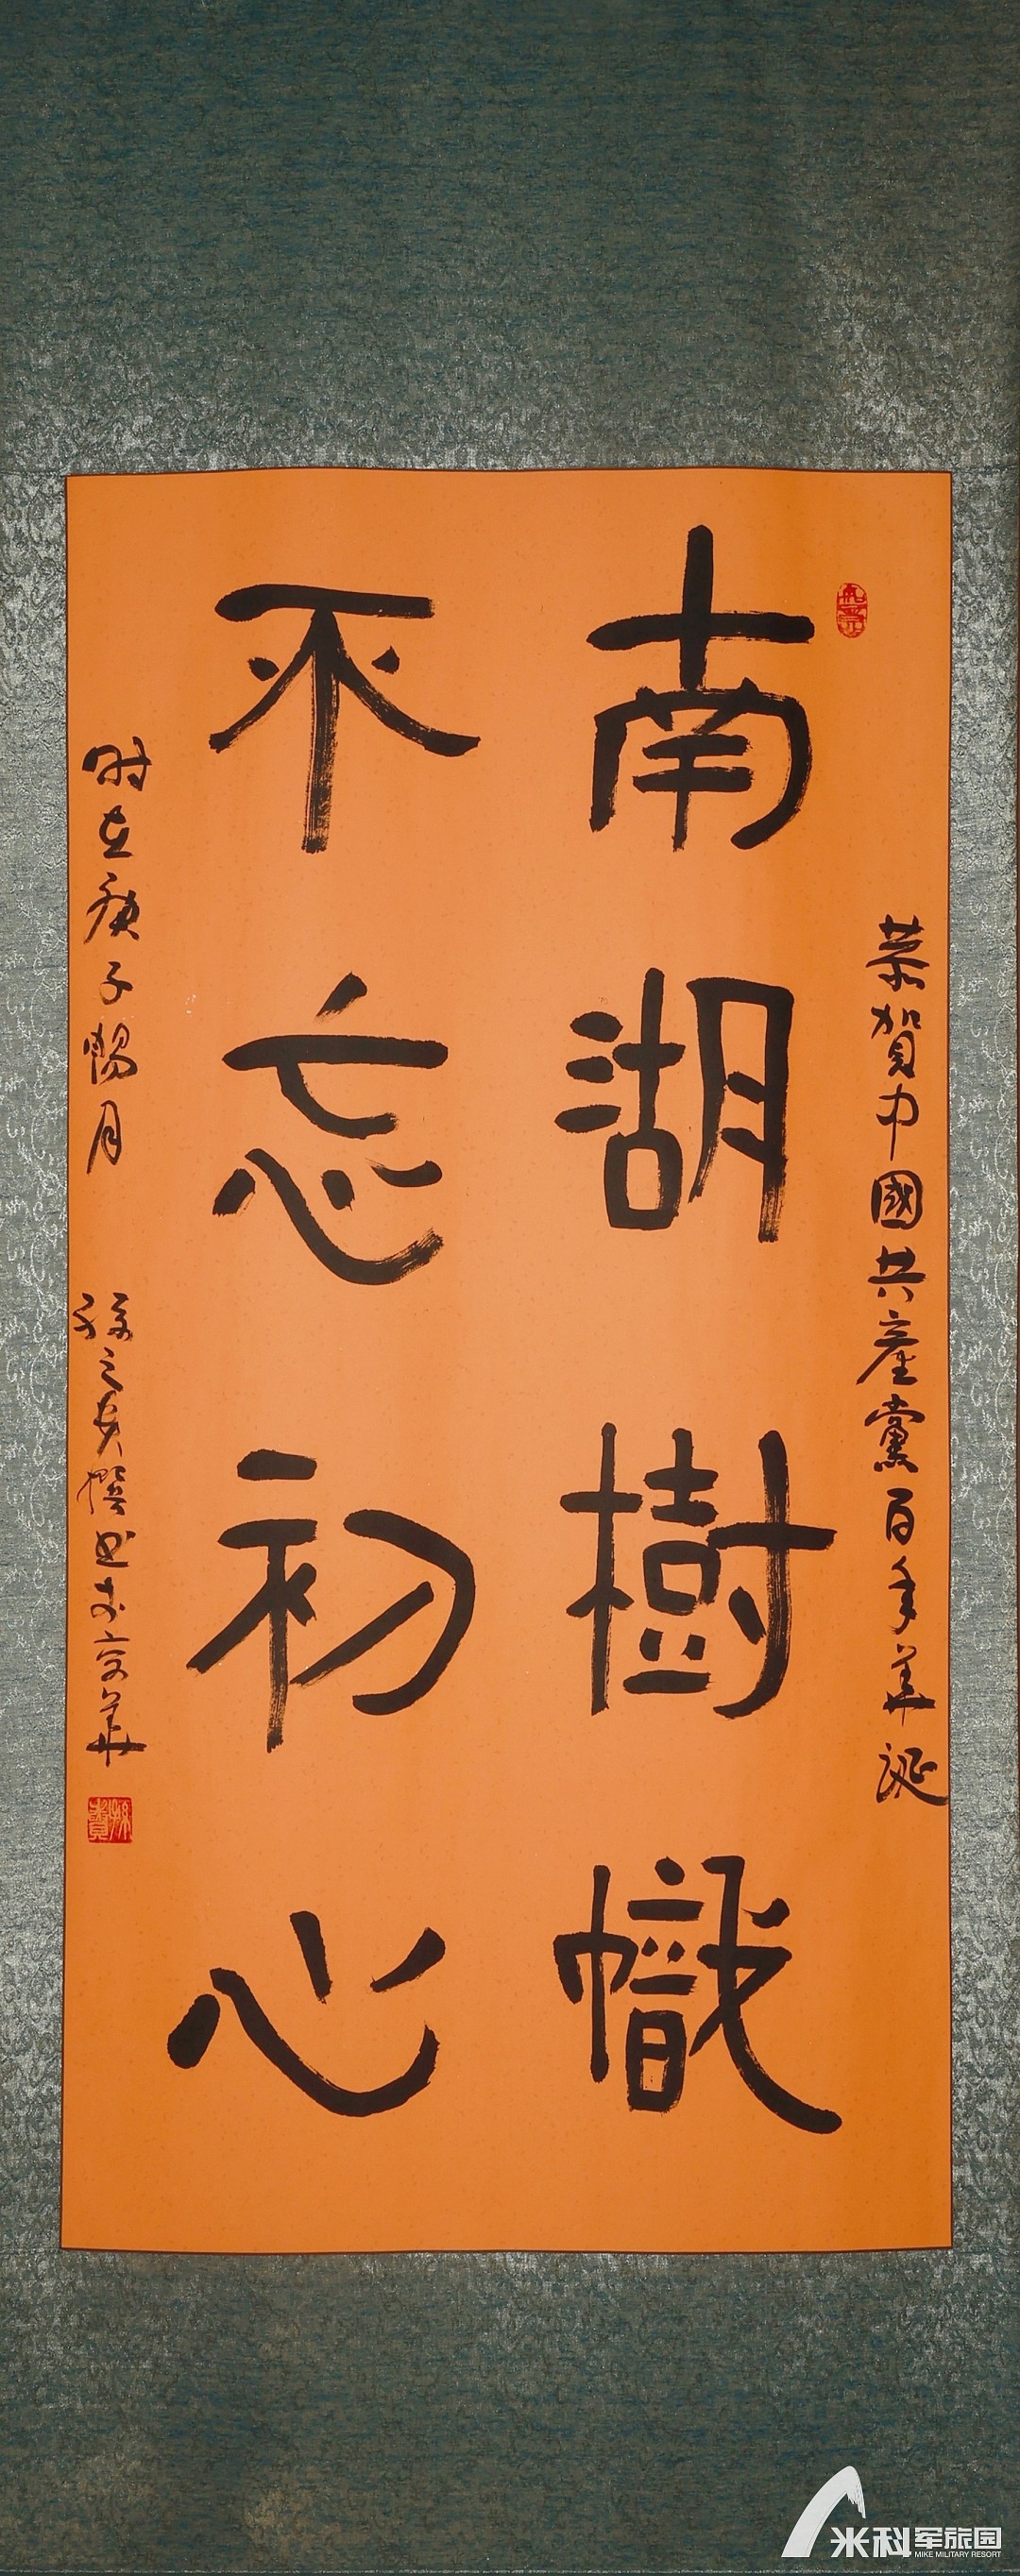 恭賀中國共產黨百年華誕
南湖樹幟
不忘初心
時在庚子暢月
孫之貴撰書於京華
米科军旅园
MIKE MILITARY RESORT